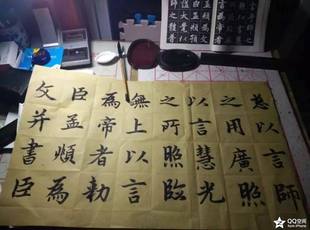 慈以言師
之用廣照
以言慧光
之所照臨
無上以言
為帝者勅
臣孟頫為
文并書臣
QQ空间